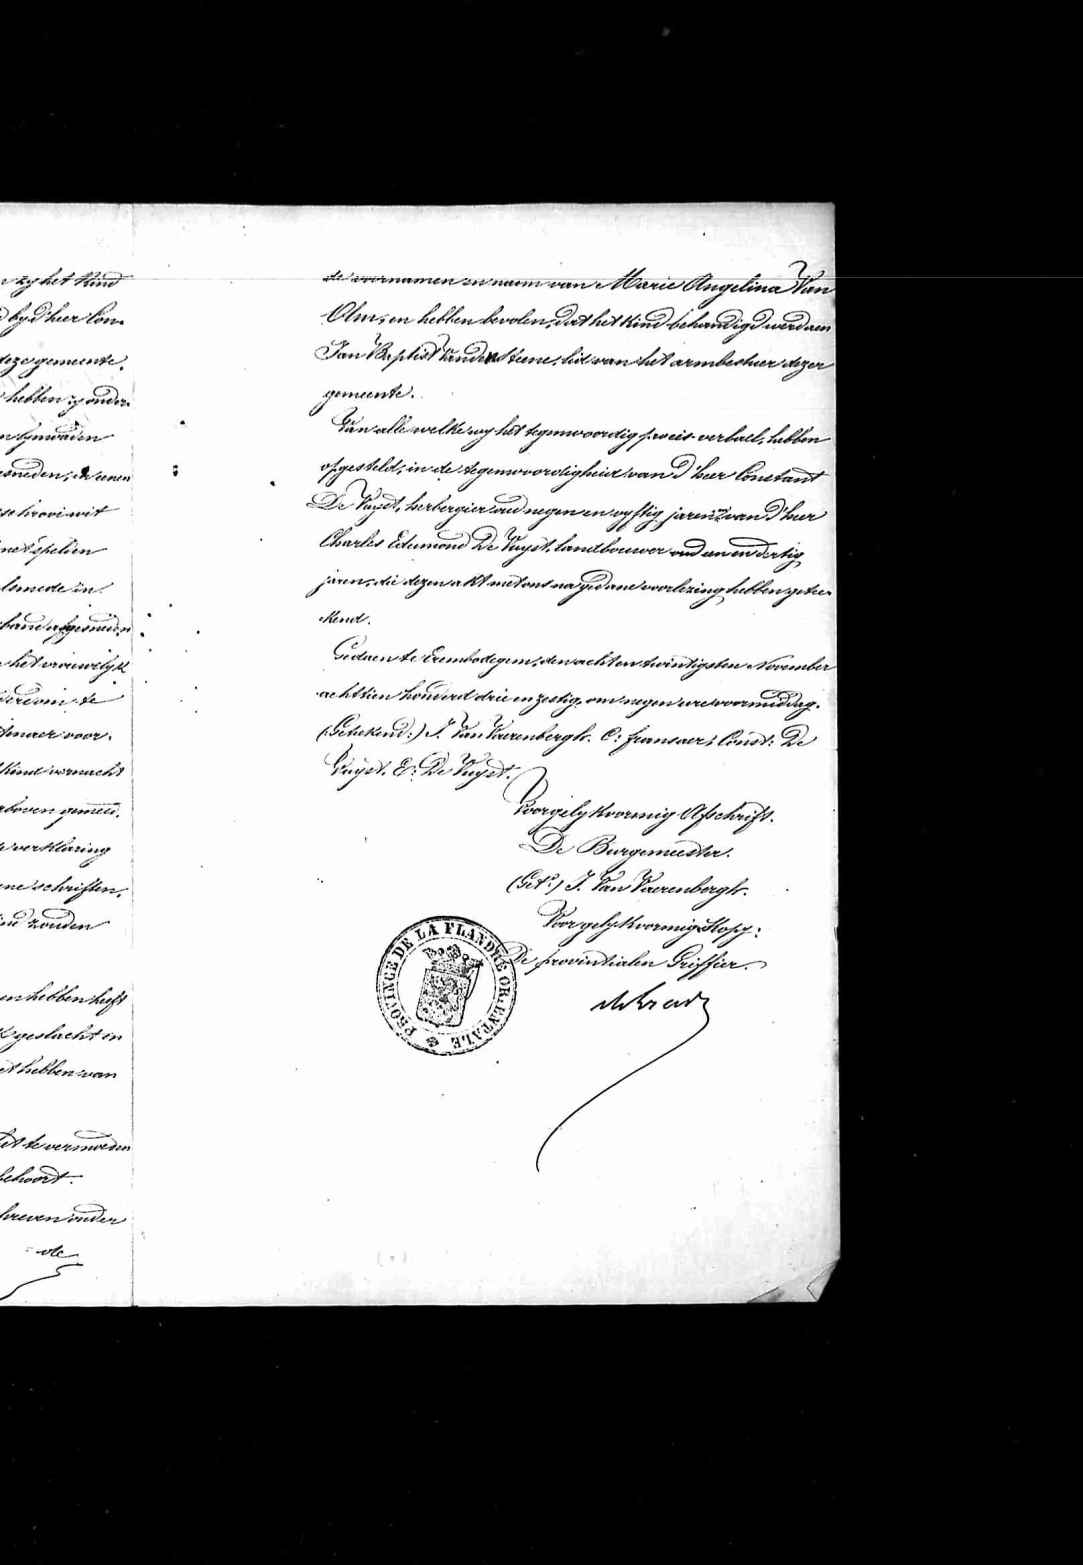 zy het Kind
by d'heer Con-
deze gemeente.
hebben zy onder-
lynwaden
gesneden, de eenen
schrooi wit
met spelden
in
afgesneden
het vrouwelyk
de
voor-
Kind vernacht
boven gemeld,
verklaring
schriften,
zouden
hebben heeft
geslacht en
hebben van
te vermoeden
behoort.
schreven onder
de
de voornamen en naam van Marie Angelina Van
Olm, en hebben bevolen, dat het Kind behandigd werd aen
Jan Baptist Vandensteene, lid van het armbestuer dezer
gemeente.
Van alle welke wy het tegenwoordig process verbael, hebben
opgesteld, in de tegenwoordigheid van d'heer Constant
De Vuyst, herbergier oud negen en vyftig jaren en van d'heer
Charles Edumond De Vuyst, landbouwer oud een en dertig
jaren, die dezen akt met ons na gedane voorlezing hebben getee-
kend.
Gedaen te Erembodegem, den achtentwintigsten November
achttien honderd drie en zestig, om negen ure voormiddag.
(Geteekend:) J. Van Vaerenbergh. C: fransaer, Const: De
Vuyst. E: De Vuyst.
Voorgelykvormig Afschrift.
De Burgemeester.
(Getd.) J. Van Vaerenbergh.
Voorgelykvormig Kopy:
De provintialen Griffier.
PROVINCE DE LA FLANDRE ORIENTALE